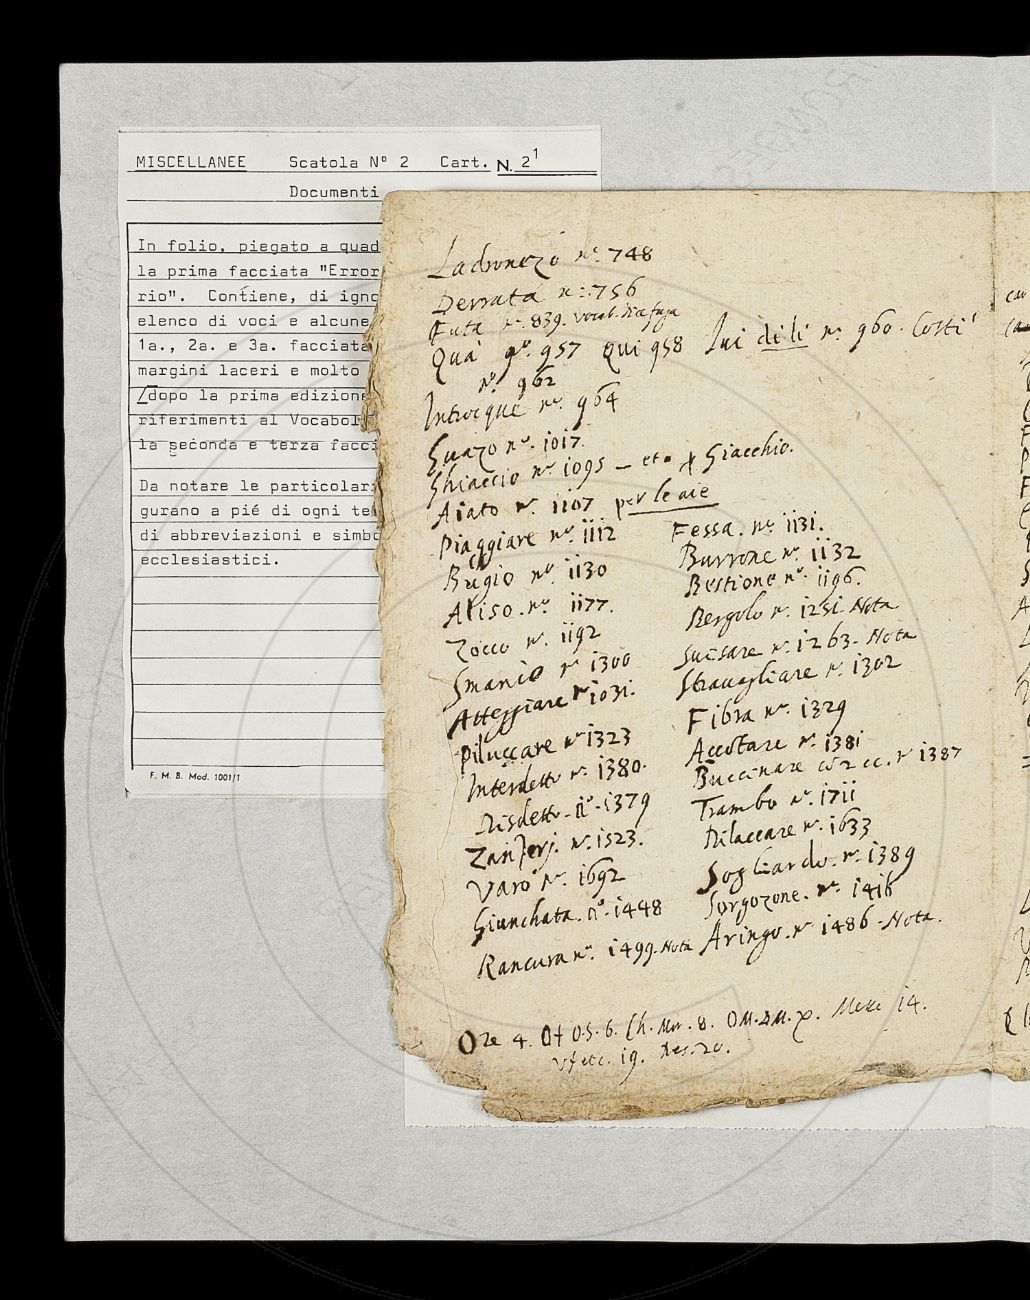 MISCELLANEE Scatola N° 2 Cart. N. 2¹
Documenti
In folio, piegato a quad
la prima facciata "Error
rio". Contiene, di igno
elenco di voci e alcune
1a., 2a. e 3a. facciata
margini laceri e molto
/dopo la prima edizione
riferimenti al Vocabol
la seconda e terza facci
Da notare le particolar
gurano a pié di ogni te
di abbreviazioni e simbo
ecclesiastici.
F. M. B. Mod. 1001/1
Ladronezo n.° 748
Derrata n.: 756
Futa n.° 839. Vocab.
Qua n.° 957 qui 958 lui di li n.° 960. Costi
n.° 962
Introcque n.° 964
Guazo n.° 1017.
Ghiaccio n.° 1095 – et Giacchio.
Aiato n.° 1107 per le aie
Piaggiare n.° 1112
Bugio n.° 1130
Aliso. n.° 1177.
Zocco n.° 1192
Smanio n.° 1300
Atteggiare n° 1031.
Piluccare n° 1323
Interdetto n.° 1380.
Disdetto. n.° 1379
n.° 1523.
Varo n.° 1692
Giunchata. n.° 1448
Rancura n.° 1499. Nota
Fessa. n.° 1131.
Burrone n.° 1132
Bestione n.° 1196.
Bergolo n.° 1251 Nota
n.° 1263. Nota
Stravagliare n.° 1302
Fibra n.° 1329
Accostare n.° 1381
Buccinare cō 2 cc. n° 1387
Trambo n.° 1711
Dilaccare n.° 1633
Sogliardo. n.° 1389
Sorgozone. n.° 1416
Aringo. n° 1486 - Nota.
Ore 4. 6. 8. 14.
19. 20.